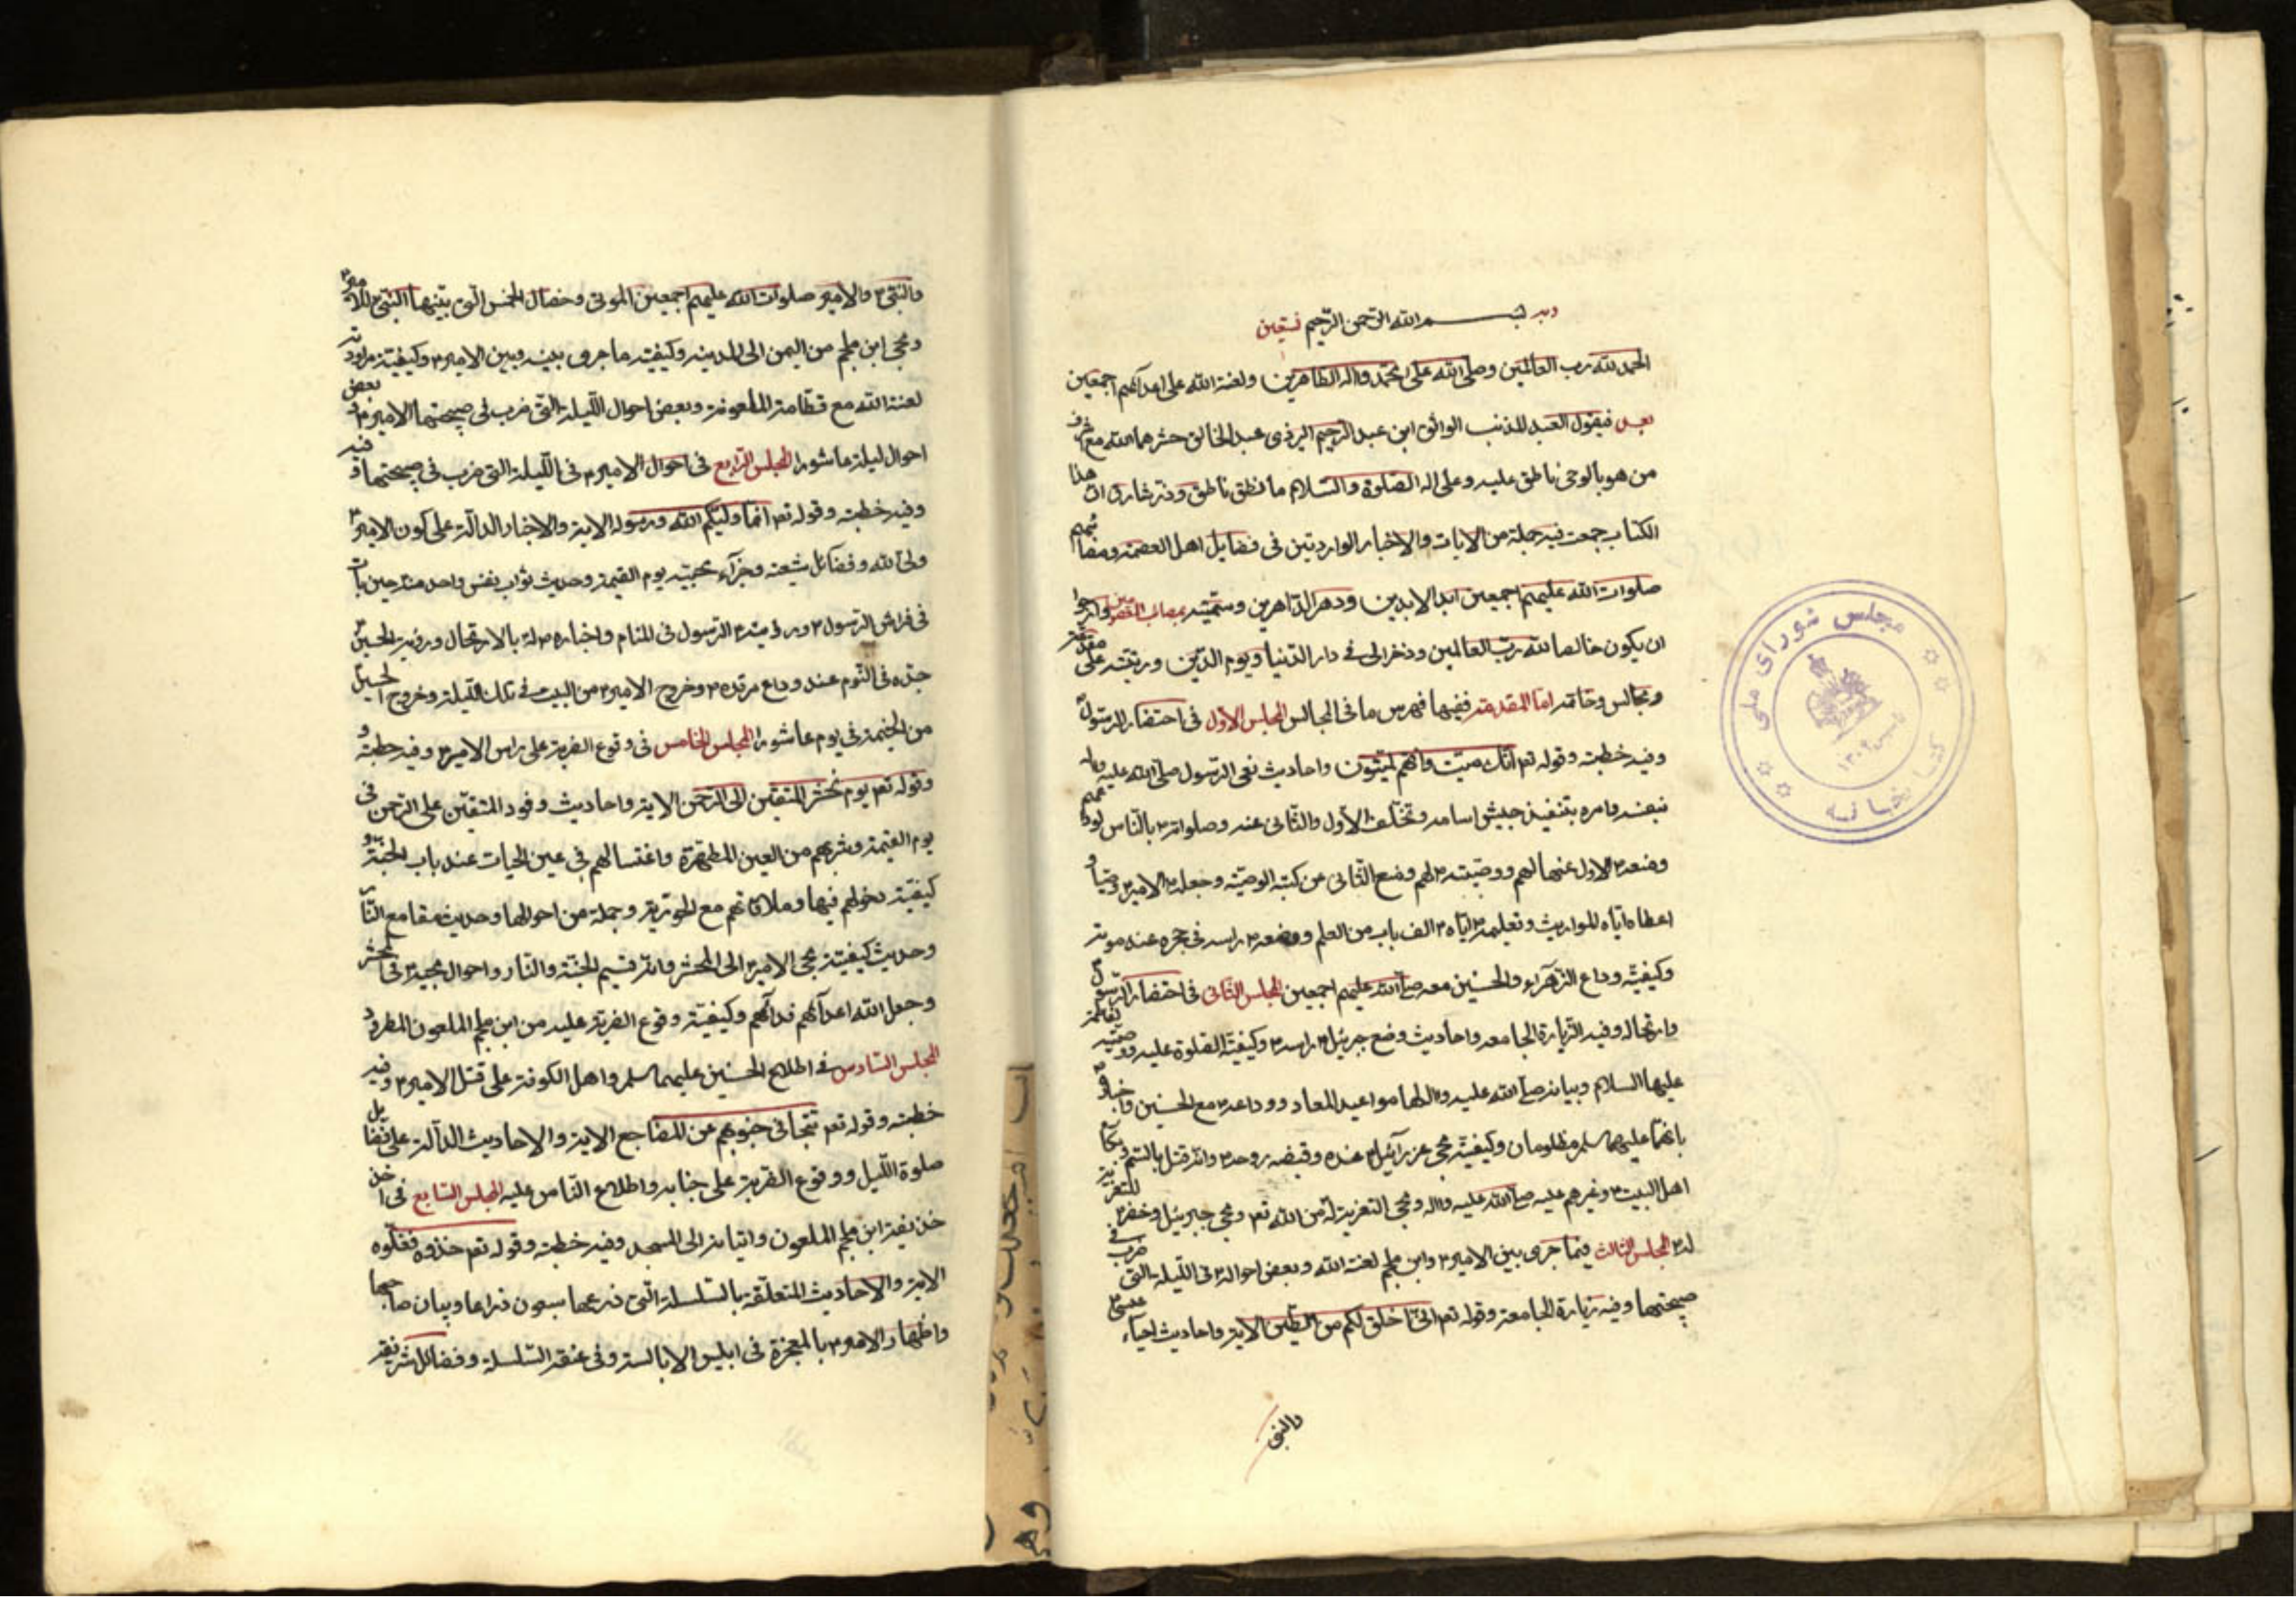 وبه بسم الله الرحمن الرحيم نستعين
الحمد لله رب العالمين وصلى الله على محمد واله الطاهرين ولعنة الله على اعدائهم اجمعين
بعد فيقول العبد المذنب الواثق ابن عبد الرحيم اليزدى عبد الخالق حشرهما الله مع
من هو بالوحى ناطق عليه وعلى اله الصلوة والسلام ما نطق ناطق وذر شارق ان هذا
الكتاب جمعت فيه جملة من الايات والاخبار الواردتين فى فضايل اهل العصمة ومصائبهم
صلوات الله عليهم اجمعين ابد الابدين ودهر الداهرين وسميته بمصائب المعصومين وارجوا
ان يكون خالصا لله رب العالمين وذخرا لى فى دار الدنيا ويوم الدين ورتبته على مقدمة
ومجالس وخاتمه اما المقدمة ففيها فهرس ما فى المجالس المجلس الاول فى احتضار الرسول
وفيه خطبته وقوله تعم انك ميت وانهم لميتون واحاديث نعى الرسول صلى الله عليه واله
نفسه وامره بتنفيذ جيش اسامه وتخلف الاول والثانى عنه وصلواته م بالناس
ومنعه م الاول عنها لهم ووصيته م لهم ومنع الثانى عن كتبه الوصيته وجعله م الامير م وصيا و
اعطاه اياه المواريث وتعليمه م اياه م الف باب من العلم ووضعه م راسه فى حجره عند موته
وكيفيته وداع الزهراء والحسنين معه صلى الله عليهم اجمعين المجلس الثانى فى احتضار الرسول
وارتحاله وفيه الزيارة الجامعه واحاديث وضع جبرئيل م راسه م وكيفيته الصلوة عليه ووصيته لفاطمة
عليها السلام وبيانه صلى الله عليه والها مواعيد المعاد ووداعه م مع الحسنين واخباره
بانهما عليهما سلم مظلومان وكيفيته مجى عزرائيل م عنده وقبضه روحه م وانه قتل بالسم وبكاء
اهل البيت م وغيرهم عليه صلى الله عليه واله ومجى التعزية له من الله تعم ومجى جبرئيل وخضر م للتعزية
له م المجلس الثالث فيما جرى بين الامير م وابن ملجم لعنه الله وبعض احواله م فى الليلة التى ضرب فى
صبيحتها وفيه زيارة الجامعة وقوله تعم انى اخلق لكم من الطين الاية واحاديث احياء عيسى م
والنبى
والنبى م والامير صلوات الله عليهم اجمعين الموتى وخصال الخمس التى بينها النبى م للامير م
ومجى ابن ملجم من اليمن الى المدينه وكيفيته ما جرى بينه وبين الامير م وكيفيته مراودته
لعنة الله مع قطامة الملعونة وبعض احوال الليلة التى ضرب فى صبيحتها الامير م وبعض
احوال ليلة عاشورا المجلس الرابع فى احوال الامير م فى الليلة التى ضرب فى صبيحتها فيه
وفيه خطبته وقوله تعم انما وليكم الله ورسوله الاية والاخبار الدالة على كون الامير م
ولى الله وفضائل شيعته وجزاء محبيه يوم القيمة وحديث ثواب نفس واحد منه حين بات
فى فراش الرسول م ورؤيته م الرسول فى المنام واخباره م له بالارتحال ورؤية الحسين م
جده فى النوم عند وداع مرقده م وخروج الامير م من البيت فى تلك الليلة وخروج الحسين
من الخيمة فى يوم عاشورا المجلس الخامس فى وقوع الضربة على راس الامير م وفيه خطبته و
وقوله تعم يوم نحشر المتقين الى الرحمن الاية واحاديث وفود المتقين على الرحمن فى
يوم القيمة وشربهم من العين المطهرة واغتسالهم فى عين الحيات عند باب الجنة و
كيفيته دخولهم فيها وملاقاتهم مع الحورية وجملة من احوالها وحديث مقامع النار
وحديث كيفيته مجى الامير م الى المحشر وانه قسيم الجنة والنار واحوال محبيه م فى المحشر
وجعل الله اعدائهم فدائهم وكيفيته وقوع الضربة عليه من ابن ملجم الملعون المطرود
المجلس السادس فى اطلاع الحسنين عليهما سلم واهل الكوفة على قتل الامير م وفيه
خطبته وقوله تعم تتجافى جنوبهم عن المضاجع الاية والاحاديث الدالة على فضايل
صلوة الليل ووقوع الضربة على جنابه واطلاع الناس عليه المجلس السابع فى اخذ
حذيفة ابن ملجم الملعون واتيانه الى المسجد وفيه خطبته وقوله تعم خذوه فغلوه
الاية والاحاديث المتعلقة بالسلسلة التى ذرعها سبعون ذراعا وبيان صاحبها
واظهار الامير م بالمعجزة فى ابليس الابالسة وفى عنقه السلسلة وفضائل شريفة
مجلس شوراى ملى
كتابخانه
تاسيس ١٣٠٢